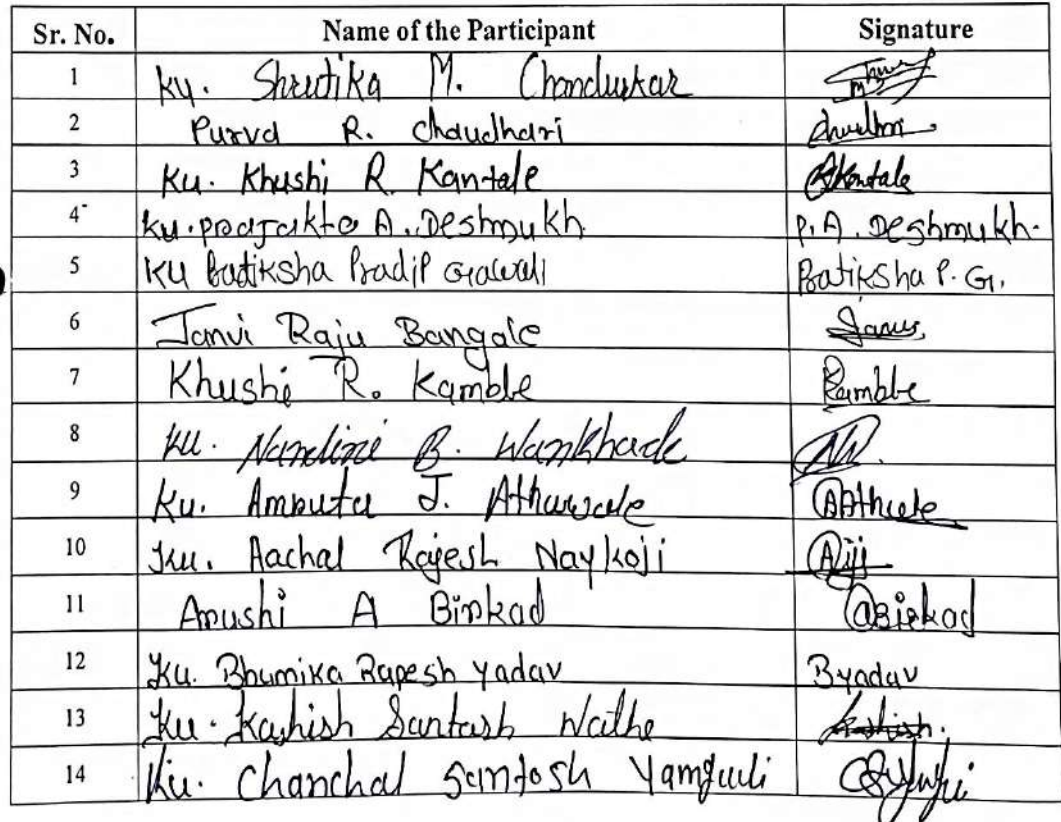 Sr. No. Name of the Participant Signature
1 Ku. Shrutika M. Chandurkar
2 Purva R. Chaudhari
3 Ku. Khushi R. Kantale AKantale
4 Ku. Prajakta A. Deshmukh. P. A. Deshmukh.
5 Ku Pratiksha Pradip Gawali Pratiksha P. G.
6 Janvi Raju Bangale
7 Khushi R. Kamble Kamble
8 Ku. Nandini B. Wankhade
9 Ku. Amruta J. Athawale
10 Ku. Aachal Rajesh Naykoji
11 Arushi A Birkad
12 Ku. Bhumika Rupesh Yadav Byadav
13 Ku. Kashish Santosh Waithe Kashish.
14 Ku. Chanchal Santosh